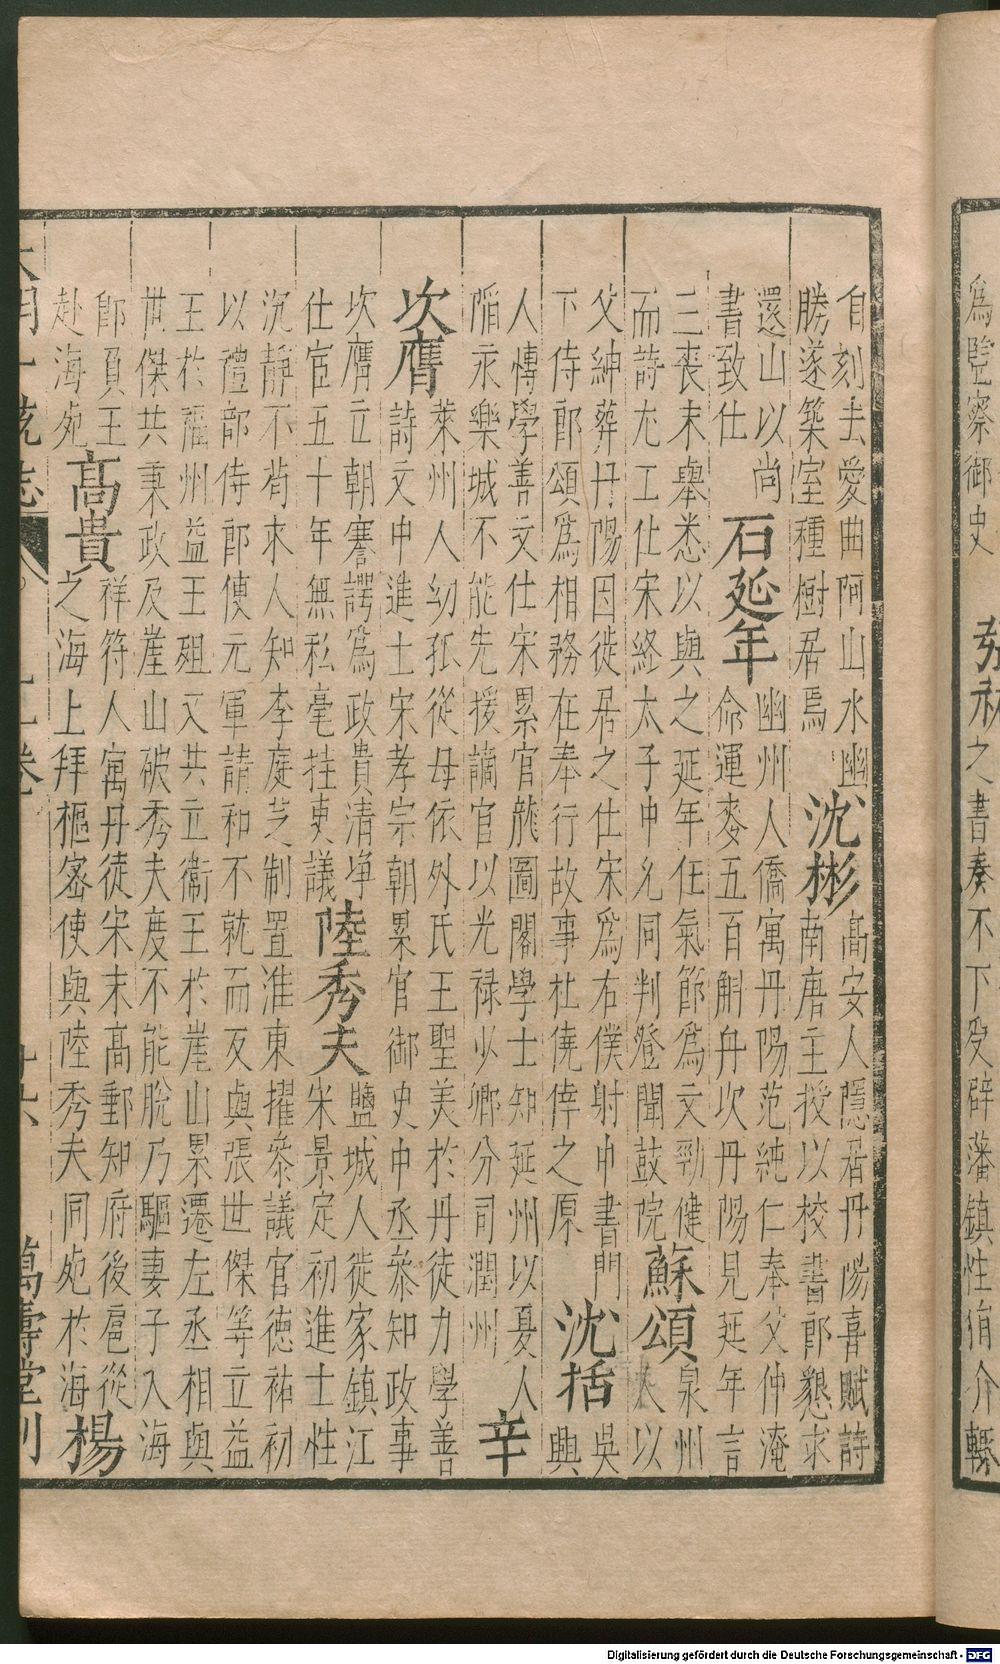 為監察御史
之書奏不下及辟藩鎮性狷介輕
自刻去愛曲阿山水幽
勝遂築室種樹居焉
沈彬
高安人隱居丹陽喜賦詩
南唐主授以校書郎懇求
還山以尚
書致仕
石延年
幽州人僑寓丹陽范純仁奉父仲淹
命運麥五百斛舟次丹陽見延年言
三喪未舉悉以與之延年任氣節為文勁健
而詩尤工仕宋終太子中允同判登聞鼓院
蘇頌
泉州
人以
父紳葬丹陽因徙居之仕宋為右僕射中書門
下侍郎頌為相務在奉行故事杜僥倖之原
沈括
吳
興
人博學善文仕宋累官龍圖閣學士知延州以憂人
陷永樂城不能先援謫官以光祿少卿分司潤州
辛
次膺
萊州人幼孤從母依外氏王聖美於丹徒力學善
詩文中進士宋孝宗朝累官御史中丞叅知政事
次膺立朝謇諤為政貴清净
仕宦五十年無私毫挂吏議
陸秀夫
鹽城人徙家鎮江
宋景定初進士性
沉靜不茍求人知李庭芝制置淮東擢叅議官德祐初
以禮部侍郎使元軍請和不就而反與張世傑等立益
王於福州益王殂又共立衞王於崖山累遷左丞相與
世傑共秉政及崖山破秀夫度不能脫乃驅妻子入海
即負王
赴海死
高貴
祥符人寓丹徒宋末高郵知府後扈從
之海上拜樞密使與陸秀夫同死於海
楊
大明一統志
萬壽堂刊
Digitalisierung gefördert durch die Deutsche Forschungsgemeinschaft - DFG